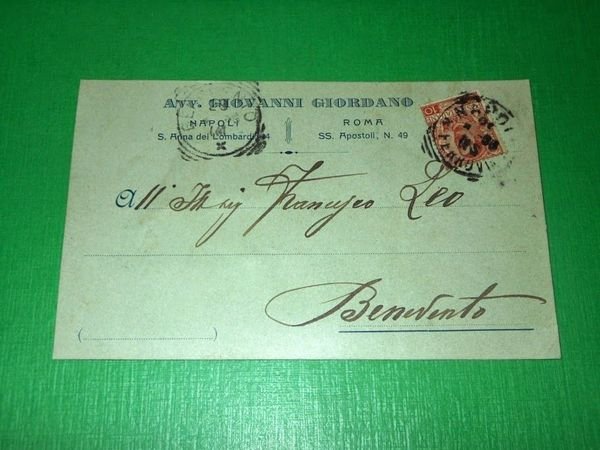 Avv. GIOVANNI GIORDANO
NAPOLI
S. Anna dei Lombardi, 44
ROMA
SS. Apostoli, N. 49
All' Ill Sig Francesco Leo
Benevento